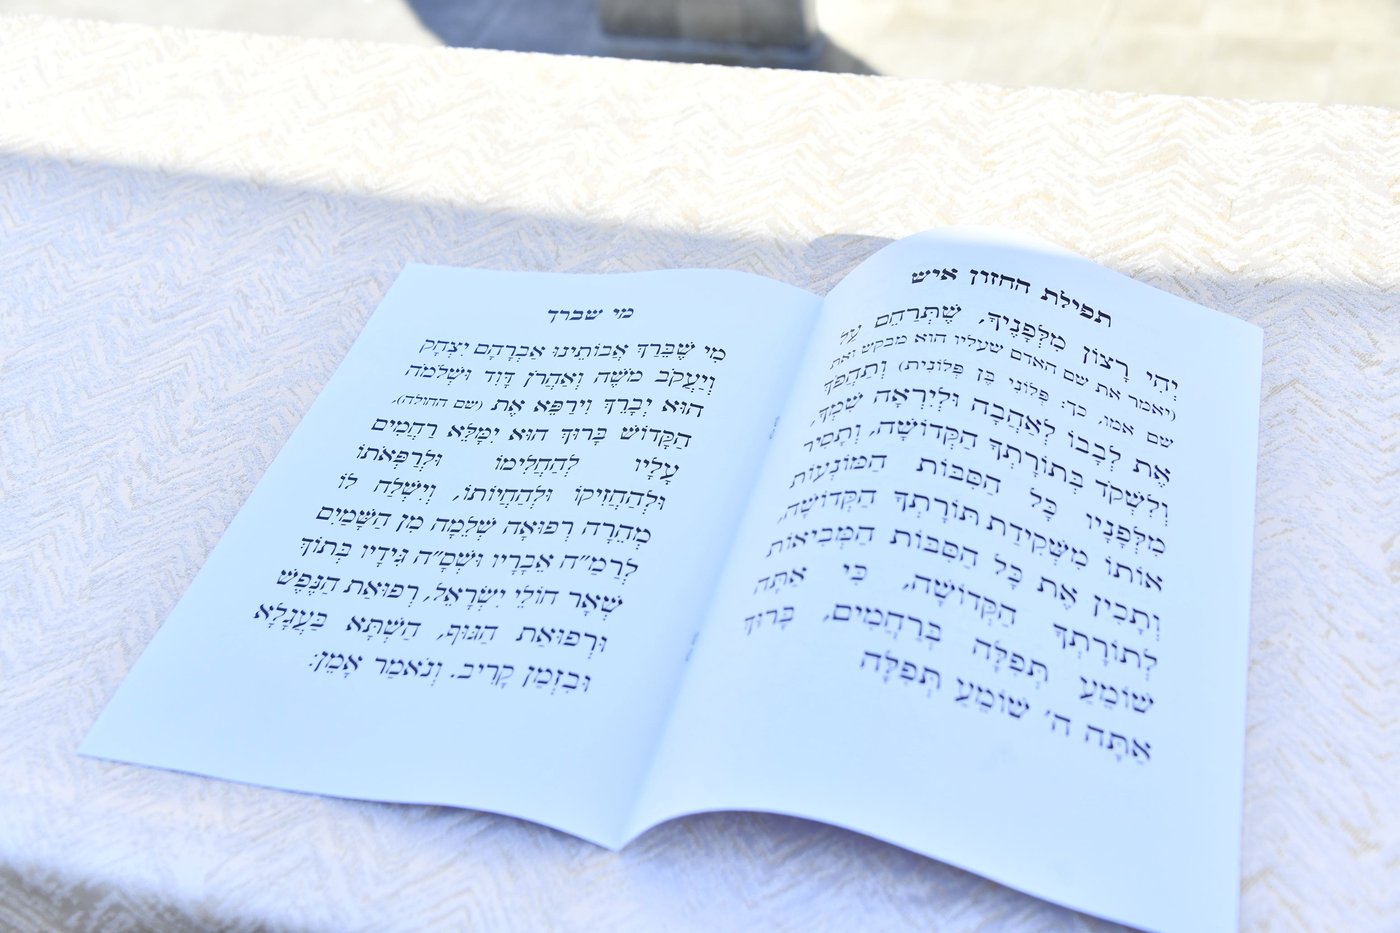 תפילת החזון איש
יְהִי רָצוֹן מִלְּפָנֶיךָ, שֶׁתְּרַחֵם עַל
(יאמר את שם האדם שעליו הוא מבקש ואת
שם אמו, כך: פְּלוֹנִי בֶּן פְּלוֹנִית) וְתַהֲפֹךְ
אֶת לְבָבוֹ לְאַהֲבָה וּלְיִרְאָה שְׁמֶךָ,
וְלִשְׁקֹד בְּתוֹרָתְךָ הַקְּדוֹשָׁה, וְתָסִיר
מִלְּפָנָיו כָּל הַסִּבּוֹת הַמּוֹנְעוֹת
אוֹתוֹ מִשְּׁקִידַת תּוֹרָתְךָ הַקְּדוֹשָׁה,
וְתָכִין אֶת כָּל הַסִּבּוֹת הַמְּבִיאוֹת
לְתוֹרָתְךָ הַקְּדוֹשָׁה, כִּי אַתָּה
שׁוֹמֵעַ תְּפִלָּה בְּרַחֲמִים, בָּרוּךְ
אַתָּה ה' שׁוֹמֵעַ תְּפִלָּה
מי שברך
מִי שֶׁבֵּרַךְ אֲבוֹתֵינוּ אַבְרָהָם יִצְחָק
וְיַעֲקֹב מֹשֶׁה וְאַהֲרֹן דָּוִד וּשְׁלֹמֹה
הוּא יְבָרֵךְ וִירַפֵּא אֶת (שם החולה),
הַקָּדוֹשׁ בָּרוּךְ הוּא יִמָּלֵא רַחֲמִים
עָלָיו לְהַחֲלִימוֹ וּלְרַפְּאֹתוֹ
וּלְהַחֲזִיקוֹ וּלְהַחֲיוֹתוֹ, וְיִשְׁלַח לוֹ
מְהֵרָה רְפוּאָה שְׁלֵמָה מִן הַשָּׁמַיִם
לְרַמַ"ח אֵבָרָיו וּשְׁסָ"ה גִּידָיו בְּתוֹךְ
שְׁאָר חוֹלֵי יִשְׂרָאֵל, רְפוּאַת הַנֶּפֶשׁ
וּרְפוּאַת הַגּוּף, הַשְׁתָּא בַּעֲגָלָא
וּבִזְמַן קָרִיב. וְנֹאמַר אָמֵן: